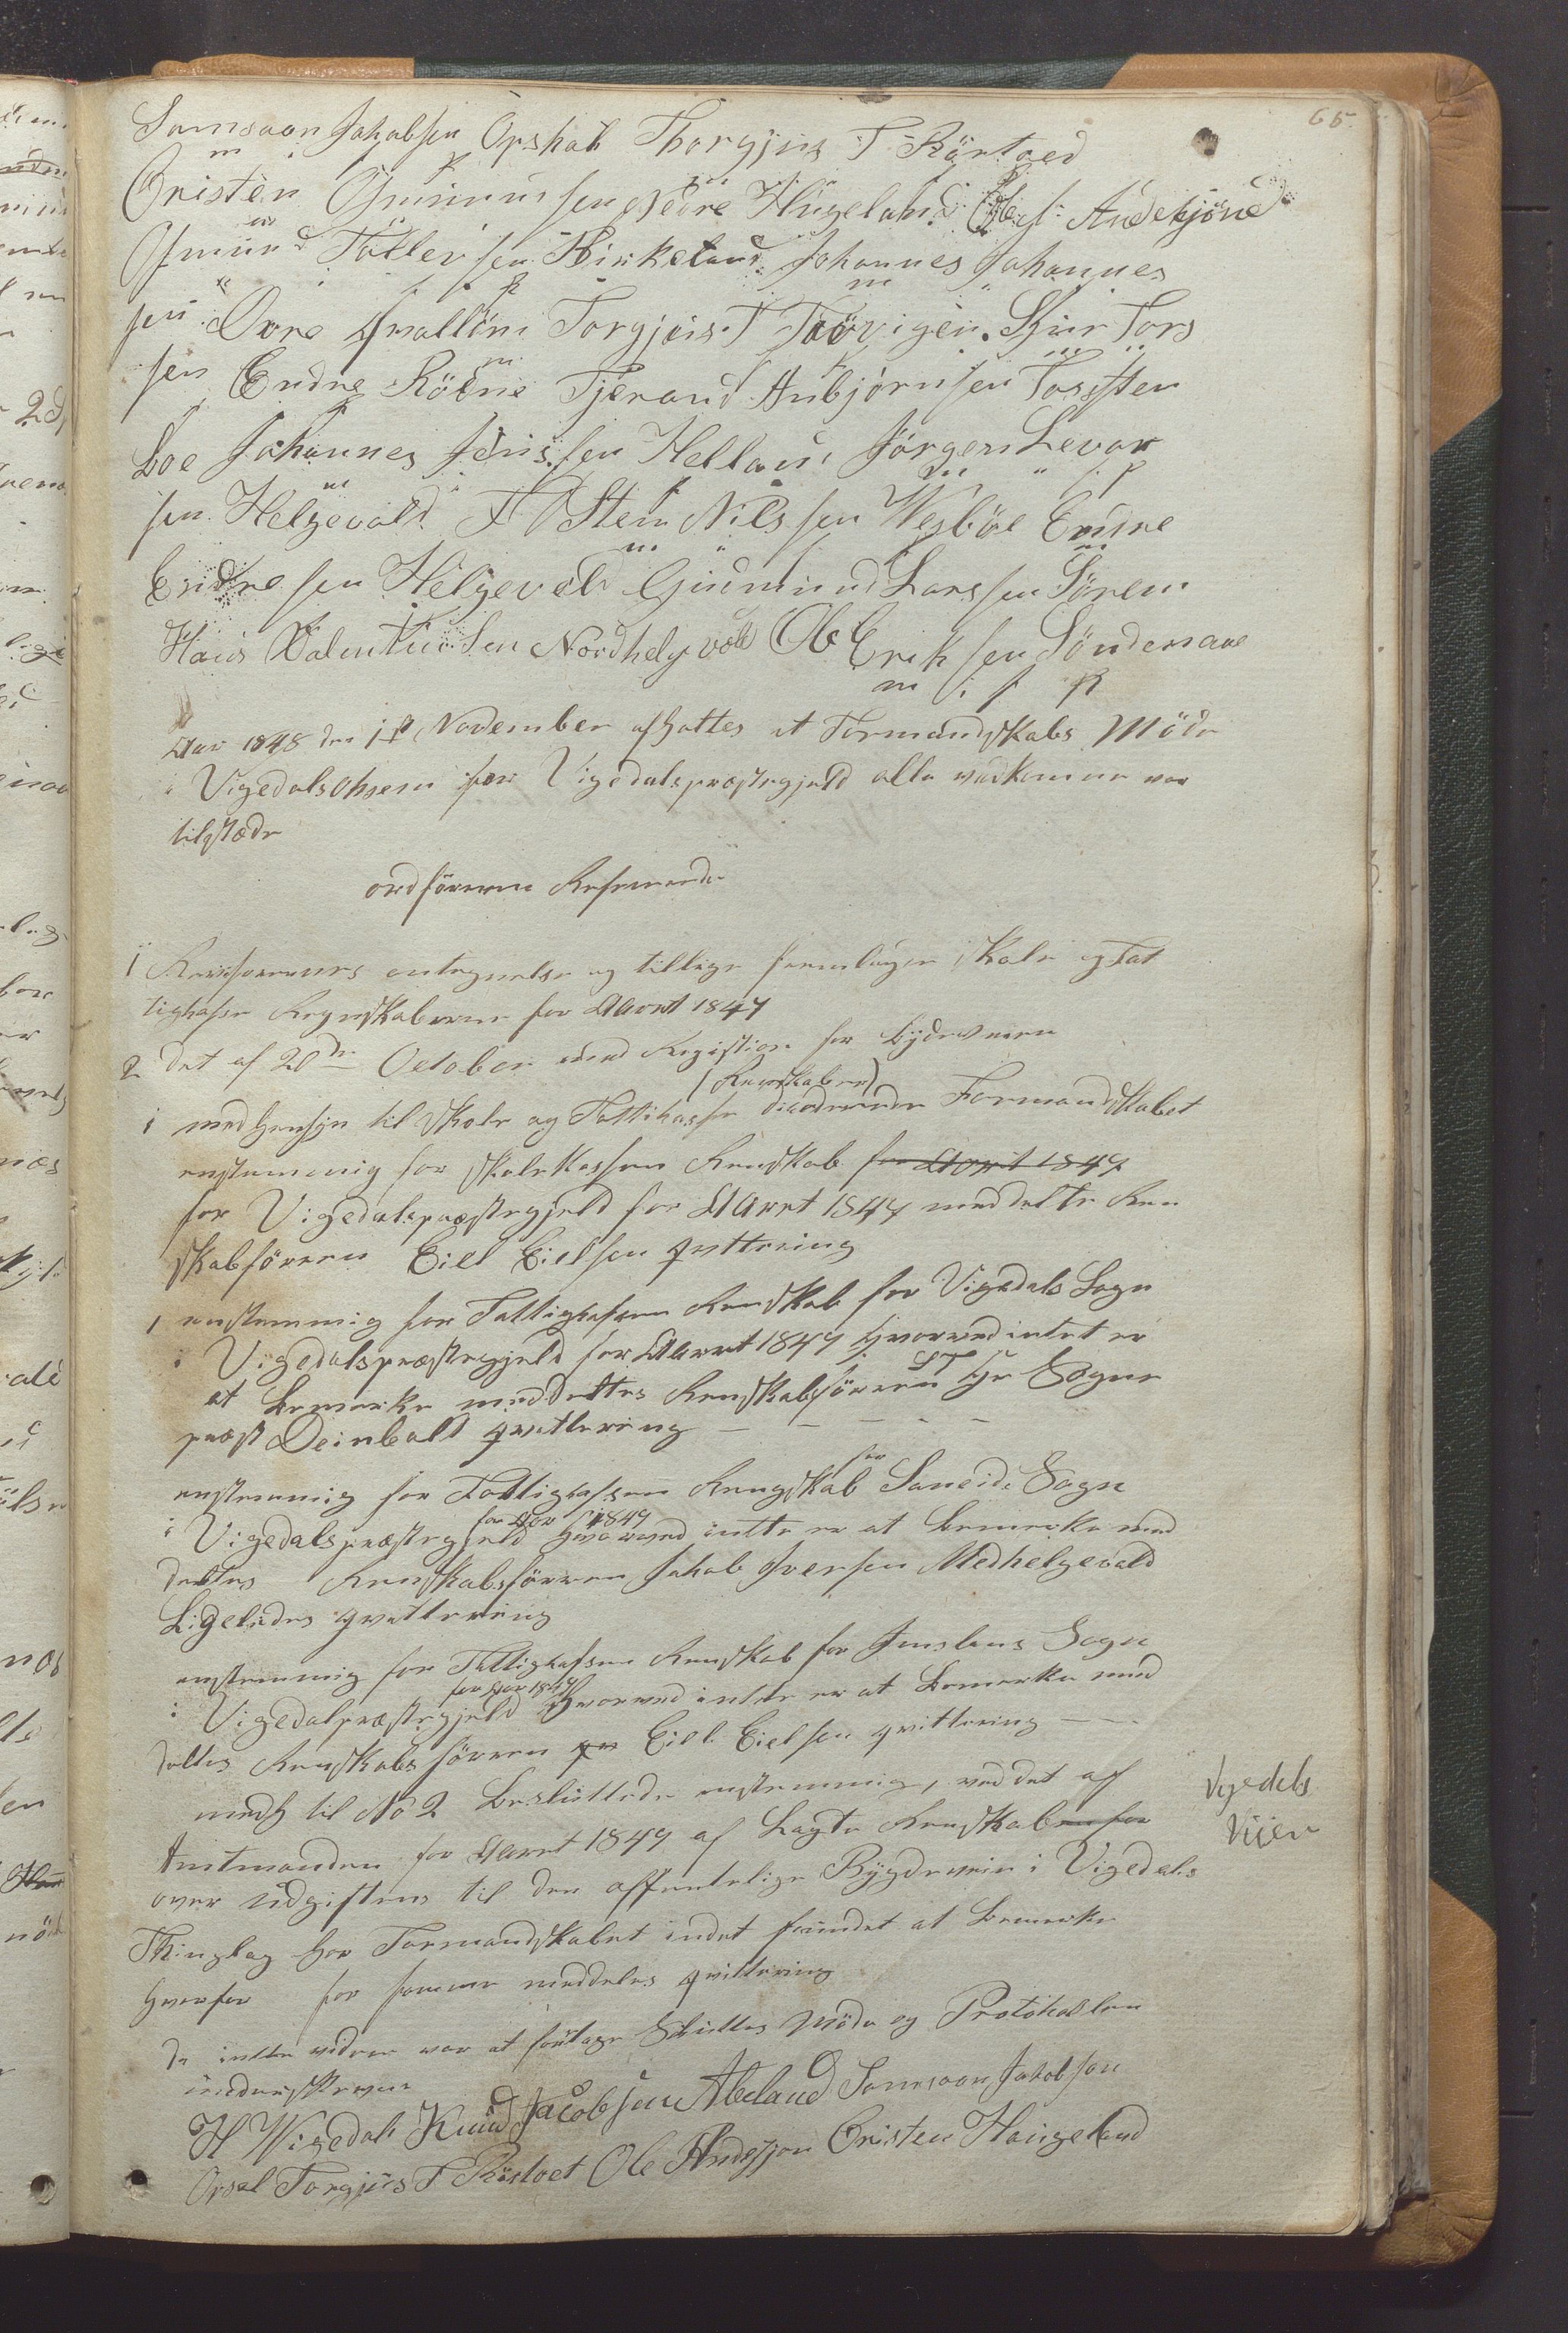 65
Samsaon Jakobsen Opshal Thorgjius T Röstoed
m i f p m i f p
Cristen Gjmunnsen Nedre Hügeland Ole A: Andekjöne
Gjmund Tollevsen Birkeland Johannes Johannes
sen Övre Frallöni Torgjeis T Tövigen. Sjur Tors
sen Endre Röene Tjerand Anbjörnsen Tosssten
Loe Johannes Jenssen Helland Jörgen Levor
sen Helgevold T O Sten Nilssen Wesböe Endre
Endresen Helgevold Gudmund Larssen Sörem
Hans Valentinsen Nordhelgvold Ole Eriksen Söndenaae
m i f p
Aar 1848 den 1ste November afholtes et Formandskabs Möde
i Vigedalsohsen for Vigedalspræstegjeld alle vedkomne var
tilstæde
ordföreren Refererede
1 Revisorerens antegnelse og tillige fremlagen Skole og Fat
tigkasse Regnskaberne for Aaret 1847
2 Det af 20de October med Registion for Bydeveien
(Renskabene)
1 medhensyn til Skole og Fattikasse Formandskabet
enstemmig for Skolekassen Renskab for Aaret 1847
for Vigedalspræstegjeld for Aaret 1847 meddelte Ren
skabföreren Eiel Eielsen qvittering
1 enstemmig for Fattigkassen Renskab for Vigedals Sogn
i Vigedalspræstegjeld for Aaret 1847 Hvorved intet er
at Bemerke meddeltes Renskabsföreren Hr Sogne
præst Deinboll qvittering — — — — —
enstemmig for Fattigkassen Rengskab for Saneids Sogn
i Vigedalspræstegjeld for Aar 1847 Hvorved intte er at Bemerke med
deltes Renskabsföreren Jakob Iversen Medhelgevold
Ligeledes qvittering
enstemmig for Fattigkassen Renskab for Imslans Sogn
i Vigedalpræstegjeld for Aar 1847 Hvorved intte er at Bemerke med
deltes Renskabsföreren Eiel Eielsen qvittering —
medh til No 2 Besluttede enstemmig, ved det af
Vigedals
Veien
Amtmanden for Aaret 1847 af Lagte Renskaben for
over udgiftens til den offentelige Bygdevein i Vigedals
Thinglag har Formandskabet indet fundet at Bemerke
Hvorfor for samme meddeles qvittering
Da intte videre var at foretage Sluttes Möde og Protokollen
underskreven
H Wigedal Knud Jacobsen Aleland Samsaon Jakobson
Opsal Torgjüs T Röstoet Ole Andsjon Cristen Haugeland